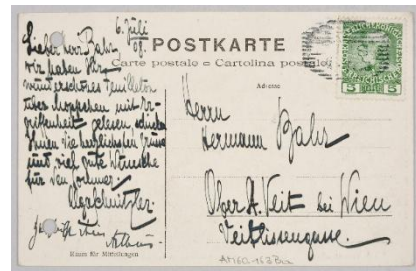 6. Juli
08.
POSTKARTE
Carte postale = Cartolina postale
Adresse
Lieber Herr Bahr,
wir haben Ihr
wunderschönes Feuilleton
über Choppchen mit Er-
griffenheit gelesen schicken
Ihnen die herzlichsten Grüße
und viel gute Wünsche
für den Sommer.
OlgaSchnitzler.
Herzlichst Ihr
Arthur
Raum für Mitteilungen
Herrn
Hermann Bahr
Ober St. Veit bei Wien
Veitlissengasse.
5 5